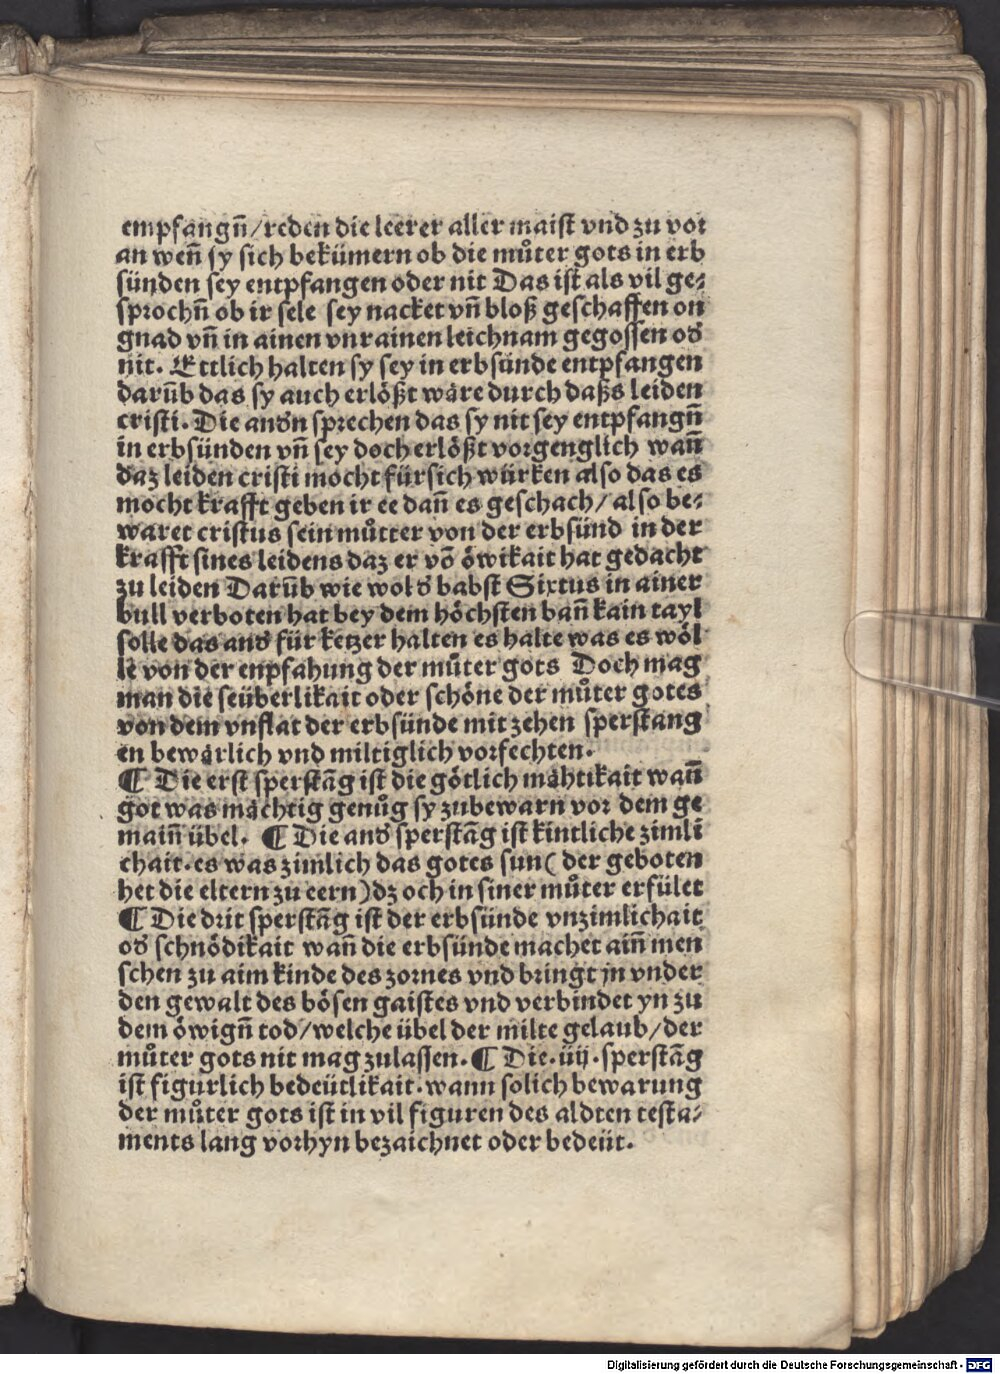 empfangn̄/reden die leerer aller maist vnd zu vor
an wen̄ sy sich bekümern ob die můter gots in erb
sünden sey entpfangen oder nit Das ist als vil ge⸗
sprochn̄ ob ir sele sey nacket vn̄ bloß geschaffen on
gnad vn̄ in ainen vnrainen leichnam gegossen od̕
nit. Ettlich halten sy sey in erbsünde entpfangen
darūb das sy auch erlößt wäre durch daßs leiden
cristi. Die and̕n sprechen das sy nit sey entpfangn̄
in erbsünden vn̄ sey doch erlößt vorgenglich wan̄
daz leiden cristi mocht fürsich würken also das es
mocht krafft geben ir ee dan̄ es geschach/ also be⸗
waret cristus sein můtter von der erbsünd in der
krafft sines leidens daz er vō öwikait hat gedacht
zu leiden Darūb wie wol d̕ babst Sixtus in ainer
bull verboten hat bey dem höchsten ban̄ kain tayl
solle das and̕ für ketzer halten es halte was es wöl
le von der enpfahung der můter gots Doch mag
man die seüberlikait oder schöne der můter gotes
von dem vnflat der erbsünde mit zehen sperstang
en bewärlich vnd miltiglich vorfechten.
¶ Die erst sperstāg ist die götlich mähtikait wan̄
got was mächtig genůg sy zubewarn vor dem ge
main̄ übel. ¶ Die and̕ sperstāg ist kintliche zimli
chait.es was zimlich das gotes sun( der geboten
het die eltern zu eern)dz och in siner můter erfület
¶ Die drit sperstāg ist der erbsünde vnzimlichait
od̕ schnödikait wan̄ die erbsünde machet ain̄ men
schen zu aim kinde des zornes vnd bringt jn vnder
den gewalt des bösen gaistes vnd verbindet yn zu
dem öwign̄ tod/welche übel der milte gelaub/der
můter gots nit mag zulassen. ¶ Die .iiij. sperstāg
ist figurlich bedeütlikait.wann solich bewarung
der můter gots ist in vil figuren des aldten testa⸗
ments lang vorhyn bezaichnet oder bedeüt.
Digitalisierung gefördert durch die Deutsche Forschungsgemeinschaft - DFG